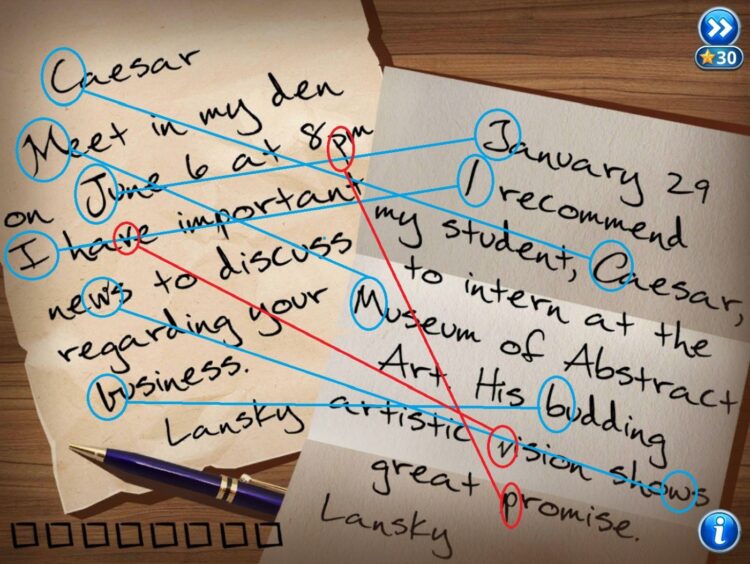 Caesar
Meet in my den
on June 6 at 8pm
I have important
news to discuss
regarding your
business.
Lansky
January 29
I recommend
my student, Caesar,
to intern at the
Museum of Abstract
Art. His budding
artistic vision shows
great promise.
Lansky
30
i